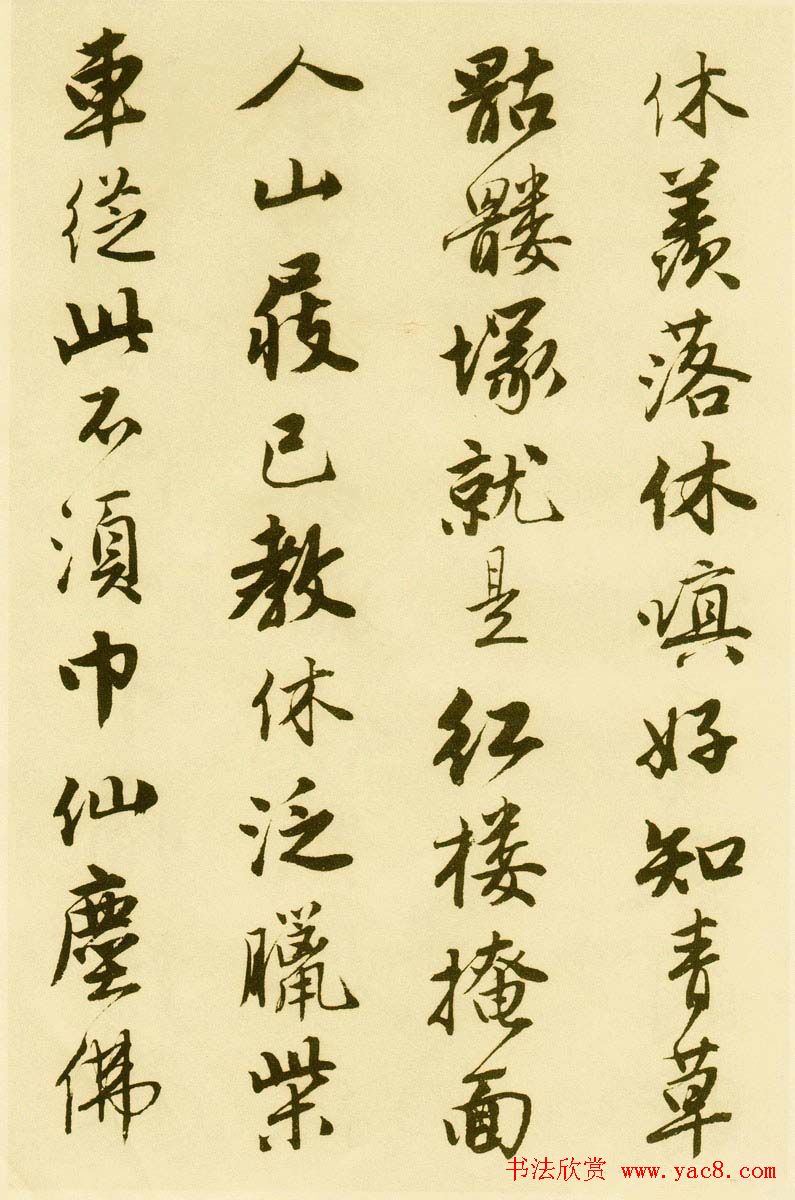 休羨落休嗔好知青草
骷髅塚就是紅楼掩面
人山屐已教休泛臘柴
車從此不須巾仙塵佛
书法欣赏 www.yac8.com